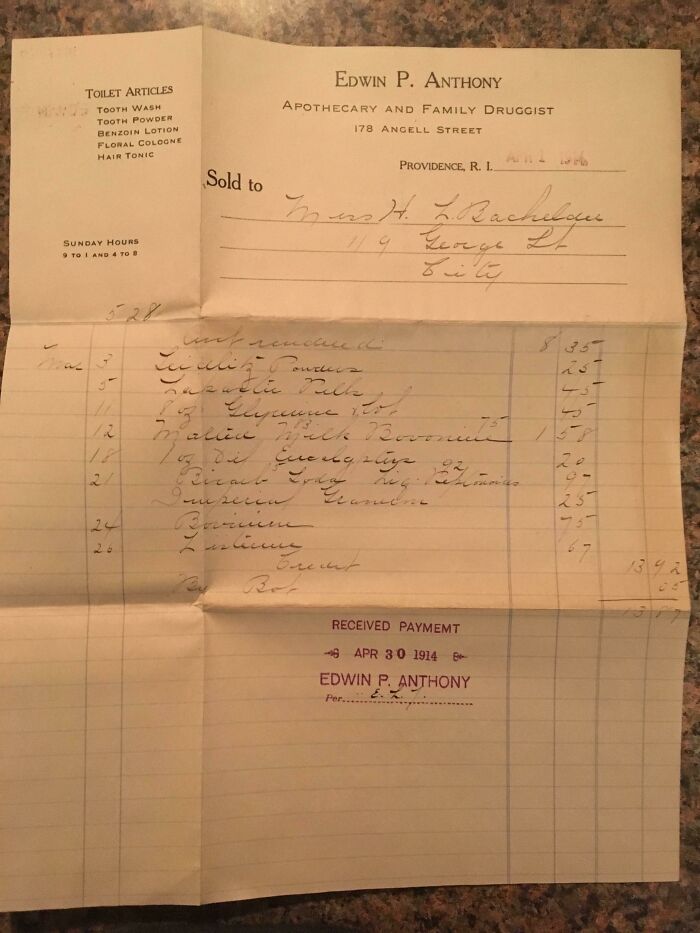 TOILET ARTICLES
TOOTH WASH
TOOTH POWDER
BENZOIN LOTION
FLORAL COLOGNE
HAIR TONIC
SUNDAY HOURS
9 TO 1 AND 4 TO 8
EDWIN P. ANTHONY
APOTHECARY AND FAMILY DRUGGIST
178 ANGELL STREET
PROVIDENCE, R. I. APR 1
Sold to
Miss H. L. Bachelder
119 George St
City
528
rendered 8 35
Mar 3 Seidlitz Powders 25
5 45
11 8 oz Glycerine 45
12 Malted Milk 83 Bovinine 75 1 58
18 1 oz Oil Eucalyptus 20
21 Bicarb Soda 5 Liq. 92 97
Imperial Granum 25
24 Bovinine 75
26 Listerine 67
13 92
Credit
By Bot 05
13 87
RECEIVED PAYMEMT
APR 30 1914
EDWIN P. ANTHONY
Per